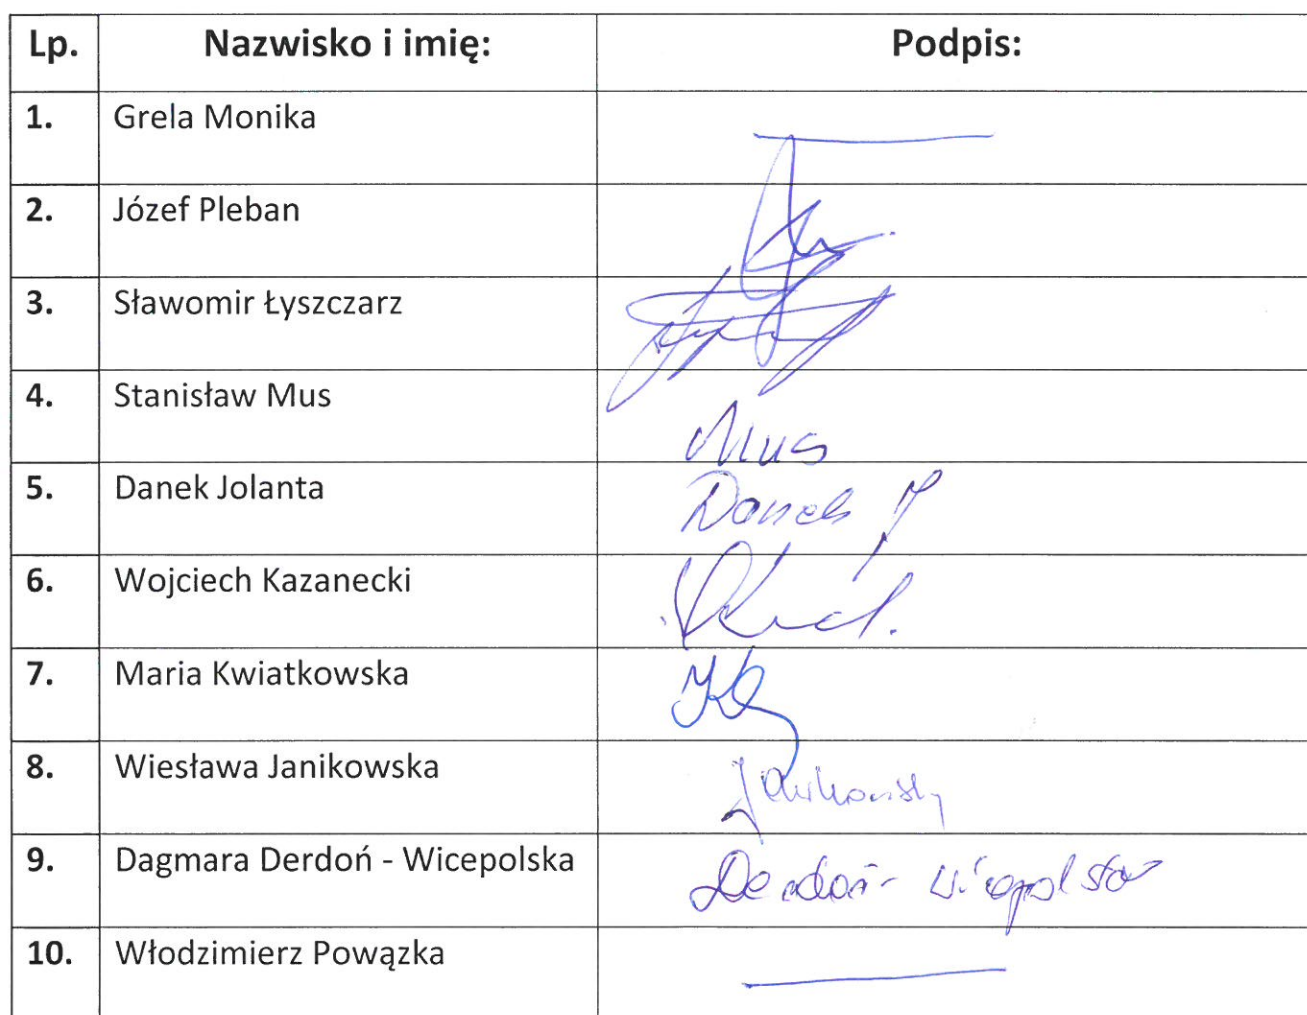 Lp. Nazwisko i imię: Podpis:
1. Grela Monika
2. Józef Pleban
3. Sławomir Łyszczarz
4. Stanisław Mus Mus
5. Danek Jolanta Danek J
6. Wojciech Kazanecki
7. Maria Kwiatkowska
8. Wiesława Janikowska
9. Dagmara Derdoń - Wicepolska Derdoń - Wicepolska
10. Włodzimierz Powązka